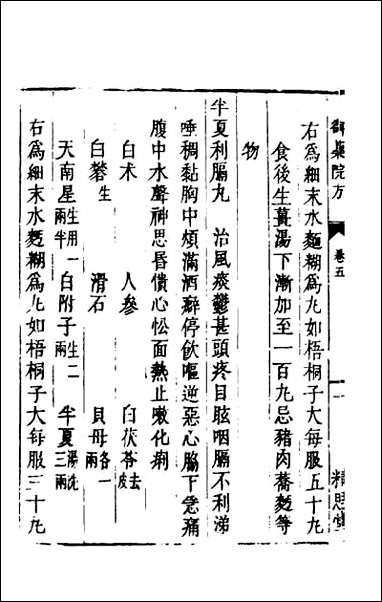 御藥院方 卷五 一 精思堂
右為細末水麵糊為丸如梧桐子大每服五十丸
食後生薑湯下漸加至一百丸忌豬肉蕎麵等
物
半夏利膈丸 治風痰鬱甚頭疼目眩咽膈不利涕
唾稠黏胸中煩滿酒癖停飲嘔逆惡心脇下急痛
腹中水聲神思昏憒心忪面熱止嗽化痢
白朮 人參 白茯苓去皮
白礬生 滑石 貝母各一兩
天南星生用一兩半 白附子生二兩 半夏湯洗三兩
右為細末水麵糊為丸如梧桐子大每服三十丸